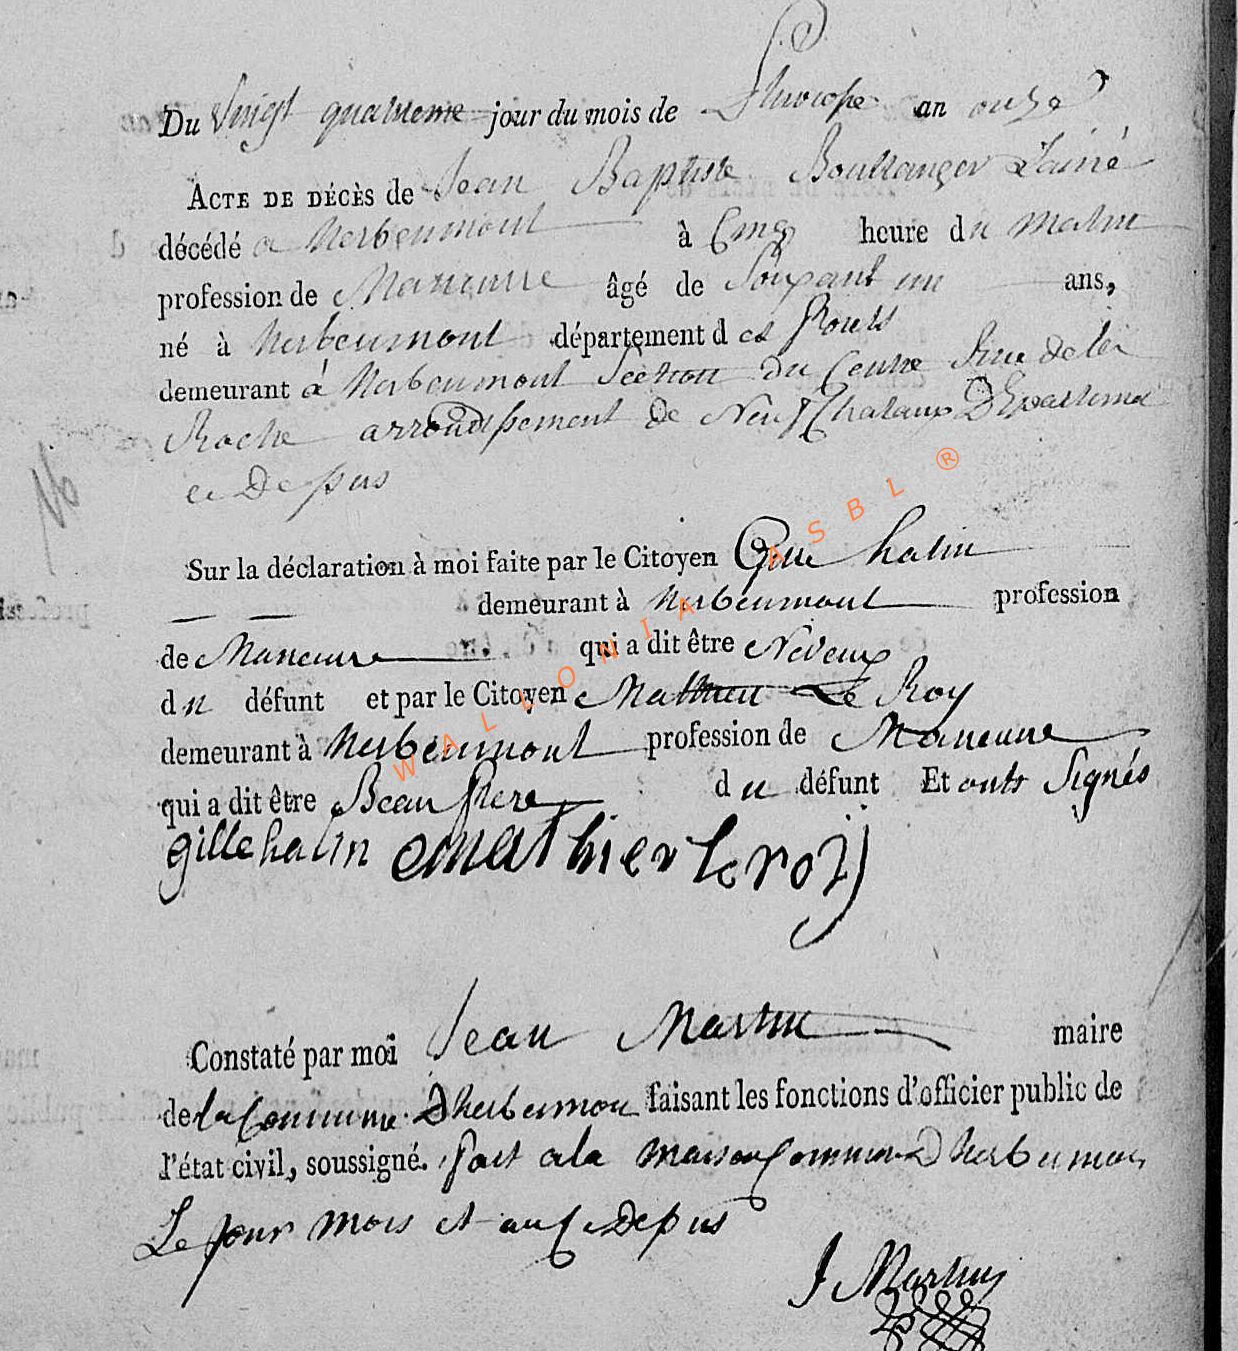 Du Vingt quatrieme jour du mois de an onze
ACTE DE DÉCÈS de Jean Baptiste Boullanger Lainé
décédé a herbeumont à Cinq heure du matin
profession de Maneuvre âgé de Soixant un ans,
né à herbeumont département des Forets
demeurant á herbeumont Section du Centre Rue de la
Roche arrondissement de Neufchataux Departemt
ce Depus
16
Sur la déclaration à moi faite par le Citoyen Gille halin
demeurant à herbeumont profession
de Maneuvre qui a dit être Neveux
du défunt et par le Citoyen Mathieu Le Roy
demeurant à herbeumont profession de Maneuvre
qui a dit être Beau frere du défunt Et onts Signés
gille halin mathieu leroÿ
Constaté par moi Jean Martin maire
de la Commune Dherbeumon faisant les fonctions d'officier public de
l'état civil, soussigné. fait ala maison Commune Dherbeumon
Le jour mois et an Ce Depus
J Martin
WALLONIA ASBL ®